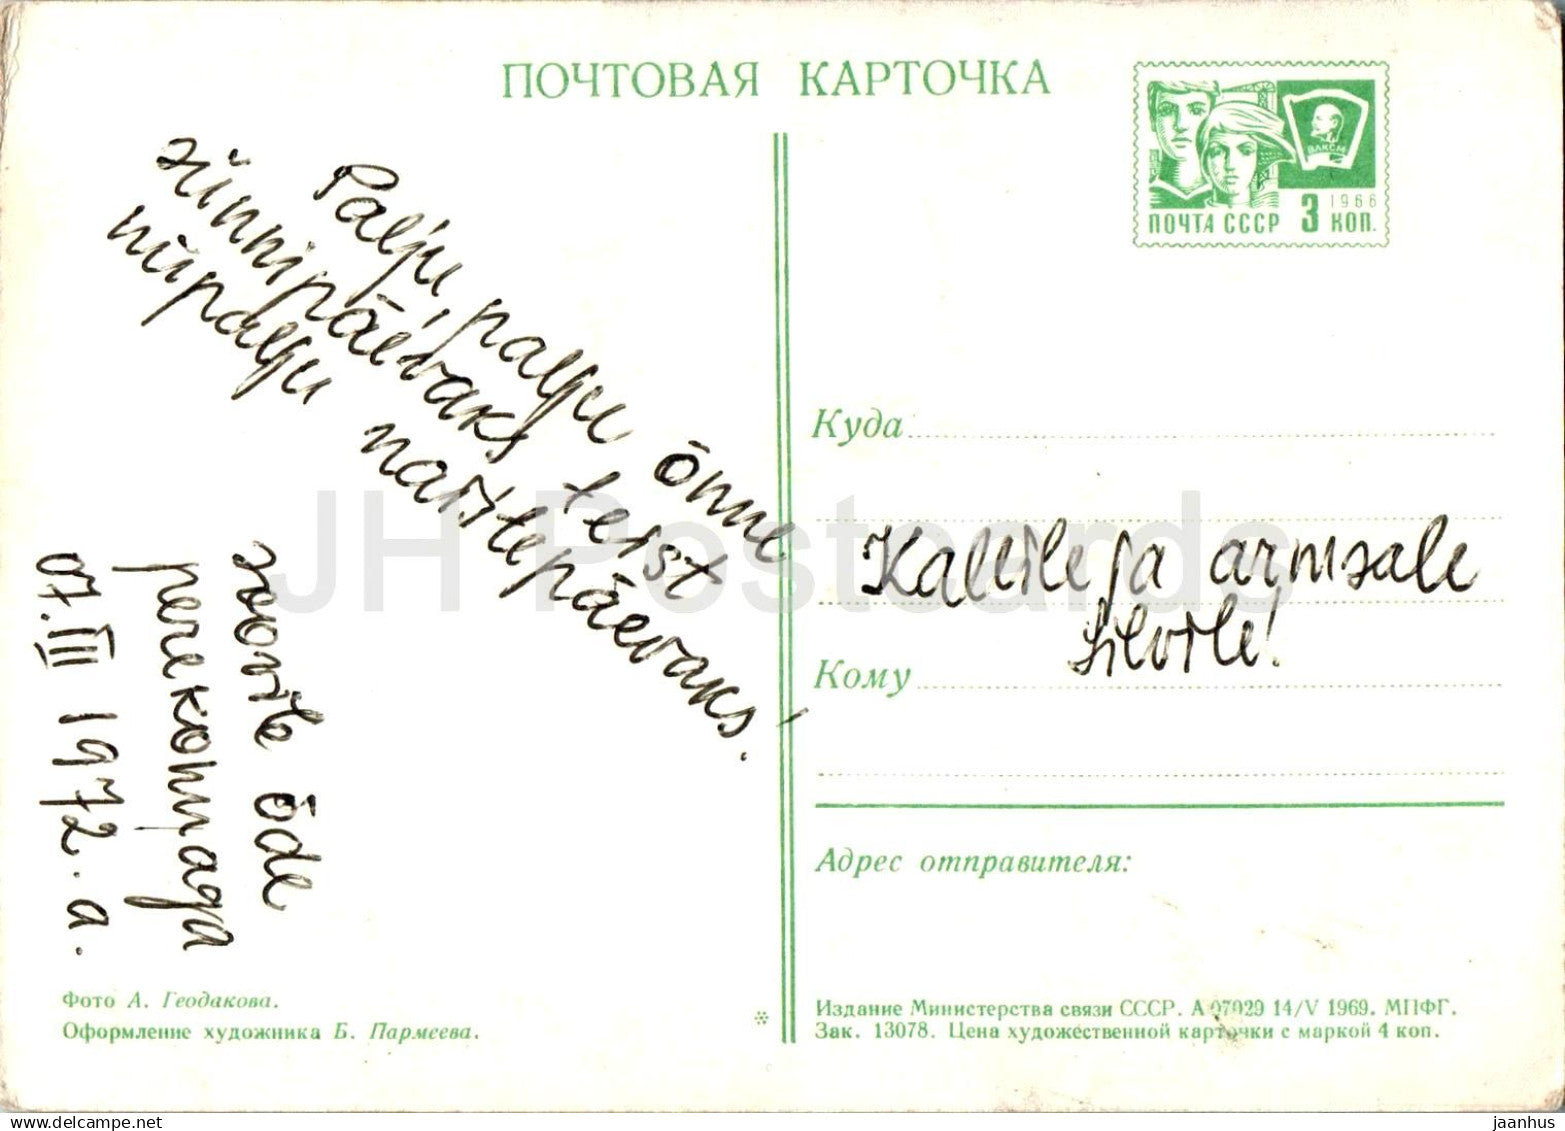 ПОЧТОВАЯ КАРТОЧКА
ВЛКСМ
1966
ПОЧТА СССР 3 КОП.
Palju, palju õnne
sünnipäevaks teist
niipalju naistepäevaks!
soovib õde
perekonnaga
07.III 1972.a.
Куда
Kallile ja armsale
Silvile!
Кому
Адрес отправителя:
Фото А. Геодакова.
Оформление художника Б. Пармеева.
Издание Министерства связи СССР. А 07029 14/V 1969. МПФГ.
Зак. 13078. Цена художественной карточки с маркой 4 коп.
JH Postcards
jaanhus